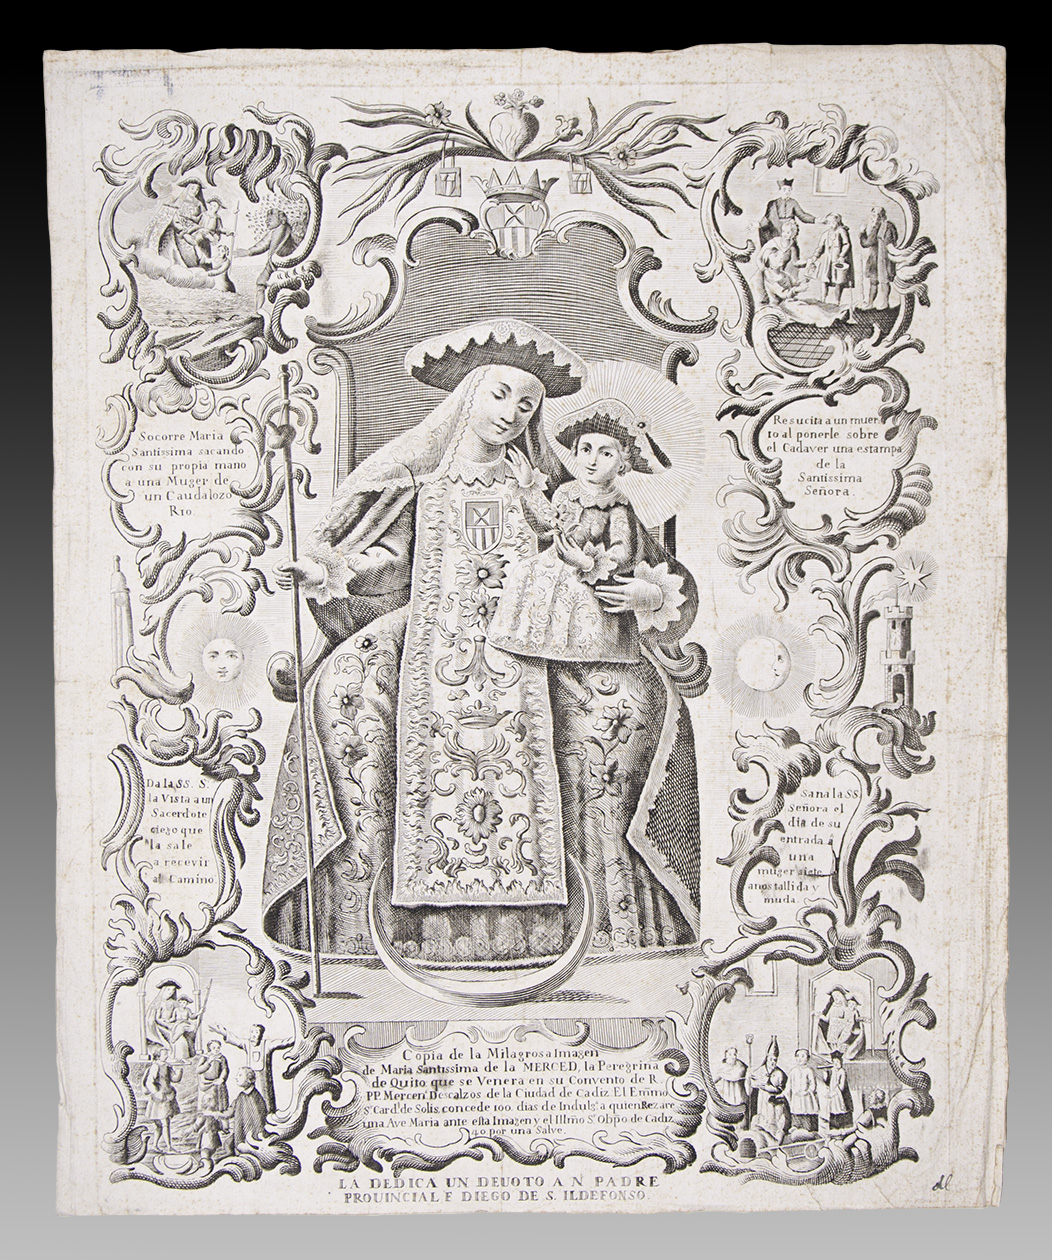 Socorre Maria
Santissima sacando
con su propia mano
a una Muger de
un Caudalozo
Rio.
Resucita a un muer
to al ponerle sobre
el Cadaver una estampa
de la
Santissima
Señora.
Da la SS. S.
la Vista a un
Sacerdote
ciego que
la sale
a recevir
al Camino
Sana la SS
Señora el
dia de su
entrada a
una
muger siete
anos tallida y
muda.
Copia de la Milagrosa Imagen
de Maria Santissima de la MERCED, la Peregrina
de Quito que se Venera en su Convento de R.
PP. Mercen. Descalzos de la Ciudad de Cadiz. El Emmo
Sr. Card.l de Solis, concede 100. dias de Indulg.a a quien Rezare
una Ave Maria ante esta Imagen y el Illmo Sr. Obpo. de Cadiz
40 por una Salve.
LA DEDICA UN DEUOTO A N PADRE
PROUINCIAL F DIEGO DE S. ILDEFONSO.